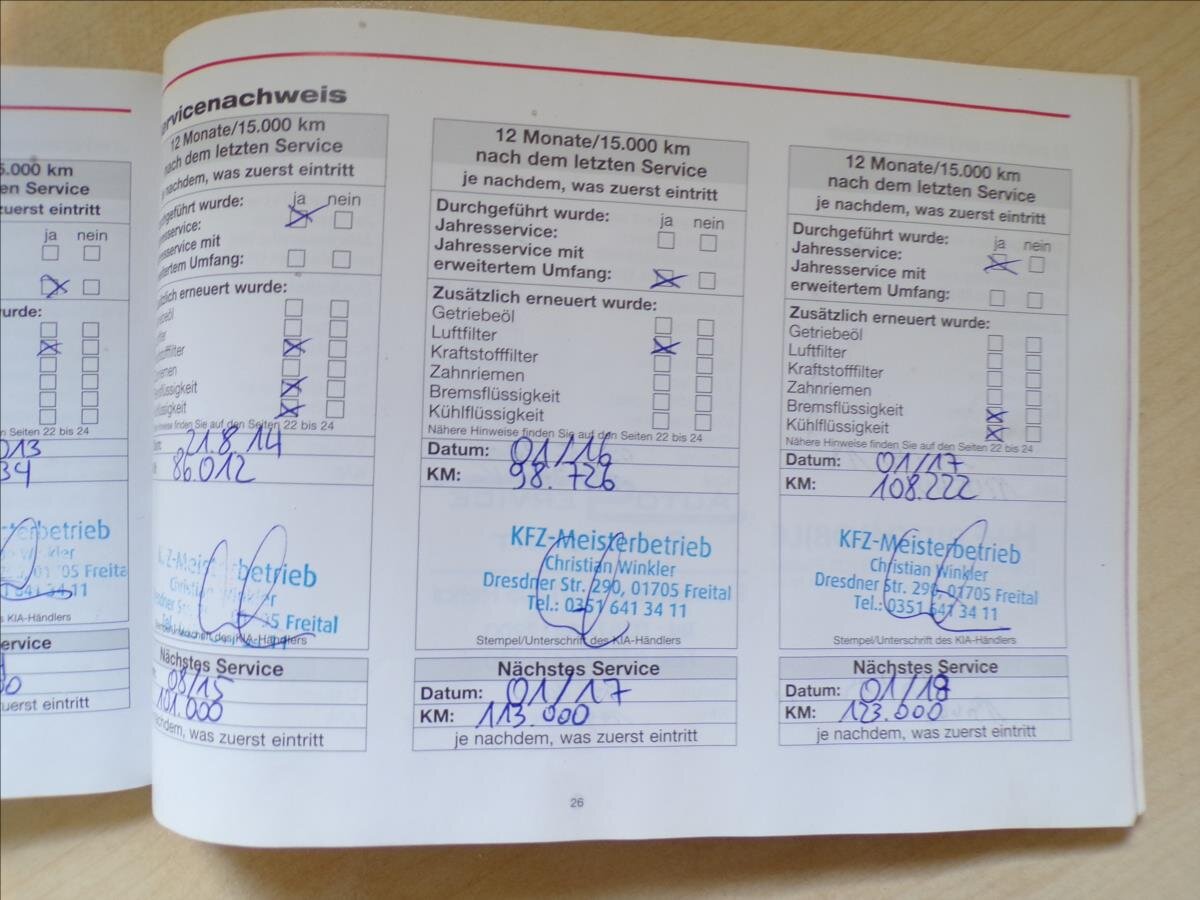 5.000 km
en Service
zuerst eintritt
ja nein
urde:
n Seiten 22 bis 24
013
34
erbetrieb
Winkler
01705 Freita
641 34 11
s KIA-Händlers
ervice
uerst eintritt
ervicenachweis
12 Monate/15.000 km
nach dem letzten Service
je nachdem, was zuerst eintritt
ja nein
chgeführt wurde:
service:
service mit
tertem Umfang:
lich erneuert wurde:
eöl
filter
offfilter
riemen
flüssigkeit
üssigkeit
inweise finden Sie auf den Seiten 22 bis 24
21.8.14
86.012
KFZ-Meisterbetrieb
Christian Winkler
Dresdner Str. 05 Freital
Tel.:
Stempel/Unterschrift des KIA-Händlers
Nächstes Service
08/15
101.000
nachdem, was zuerst eintritt
12 Monate/15.000 km
nach dem letzten Service
je nachdem, was zuerst eintritt
Durchgeführt wurde: ja nein
Jahresservice:
Jahresservice mit
erweitertem Umfang:
Zusätzlich erneuert wurde:
Getriebeöl
Luftfilter
Kraftstofffilter
Zahnriemen
Bremsflüssigkeit
Kühlflüssigkeit
Nähere Hinweise finden Sie auf den Seiten 22 bis 24
Datum: 01/16
KM: 98.726
KFZ-Meisterbetrieb
Christian Winkler
Dresdner Str. 290, 01705 Freital
Tel.: 0351 641 34 11
Stempel/Unterschrift des KIA-Händlers
Nächstes Service
Datum: 01/17
KM: 113.000
je nachdem, was zuerst eintritt
12 Monate/15.000 km
nach dem letzten Service
je nachdem, was zuerst eintritt
Durchgeführt wurde: ja nein
Jahresservice:
Jahresservice mit
erweitertem Umfang:
Zusätzlich erneuert wurde:
Getriebeöl
Luftfilter
Kraftstofffilter
Zahnriemen
Bremsflüssigkeit
Kühlflüssigkeit
Nähere Hinweise finden Sie auf den Seiten 22 bis 24
Datum: 01/17
KM: 108.222
KFZ-Meisterbetrieb
Christian Winkler
Dresdner Str. 290, 01705 Freital
Tel.: 0351 641 34 11
Stempel/Unterschrift des KIA-Händlers
Nächstes Service
Datum: 01/18
KM: 123.000
je nachdem, was zuerst eintritt
26